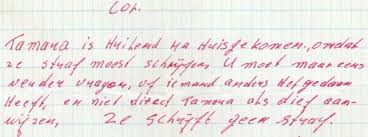 Cor.
Tamara is Huilend na Huis gekomen, omdat
ze straf moest schrijven, U moet maar eens
verder vragen, of iemand anders Het gedaan
Heeft, en niet direct Tamara als dief aan-
wijzen, Ze schrijft geen straf.